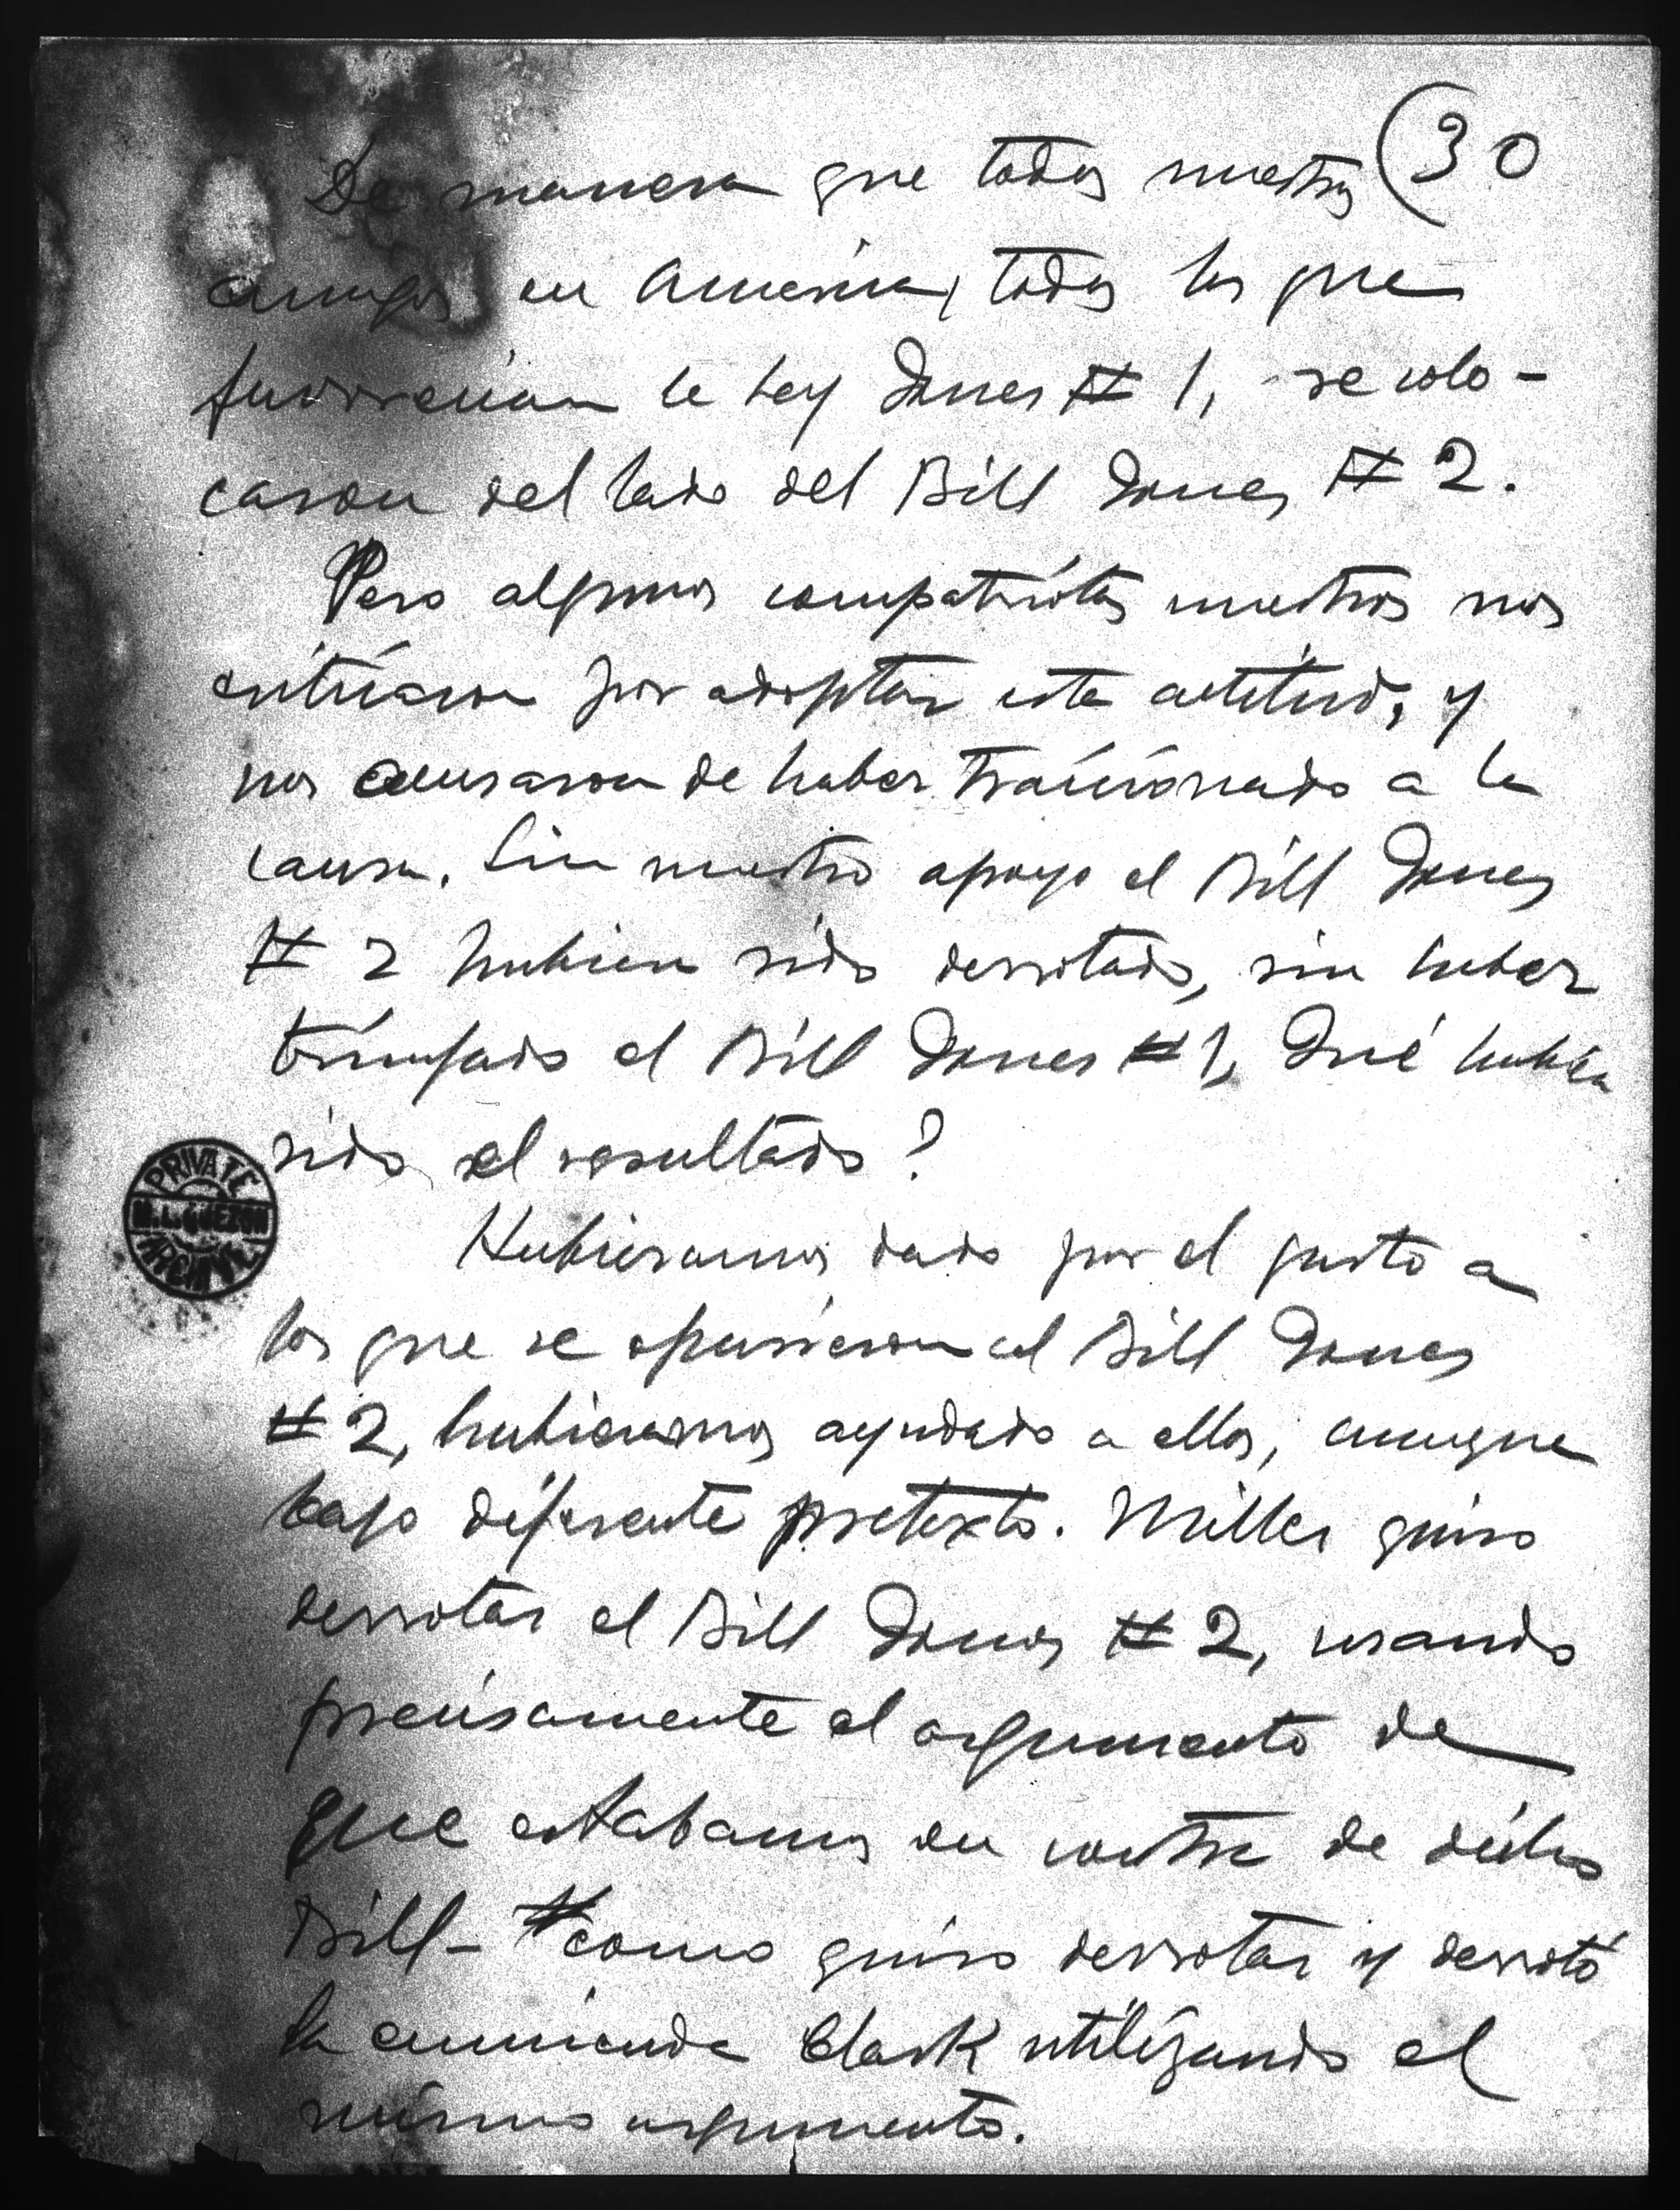 30
De manera que todos nuestros
amigos en America, todos los que
favorecian la Ley Jones # 1, se colo-
caron del lado del Bill Jones # 2.
Pero algunos compatriotas nuestros nos
criticaron por adoptar esta actitud, y
nos acusaron de haber traicionado a la
causa. Sin nuestro apoyo el Bill Jones
# 2 hubiera sido derrotado, sin haber
triunfado el Bill Jones # 1, Qué hubiera
sido el resultado?
Hubieramos dado por el gusto a
los que se opusieron al Bill Jones
# 2, hubieramos ayudado a ellos, aunque
bajo diferente pretexto. Miller quiso
derrotar el Bill Jones # 2, usando
precisamente el argumento de
que estabamos en contra de dicho
Bill - como quiso derrotar y derrotó
la enmienda Clark utilizando el
mismo argumento.
PRIVATE
M. L. QUEZON
ARCHIVE